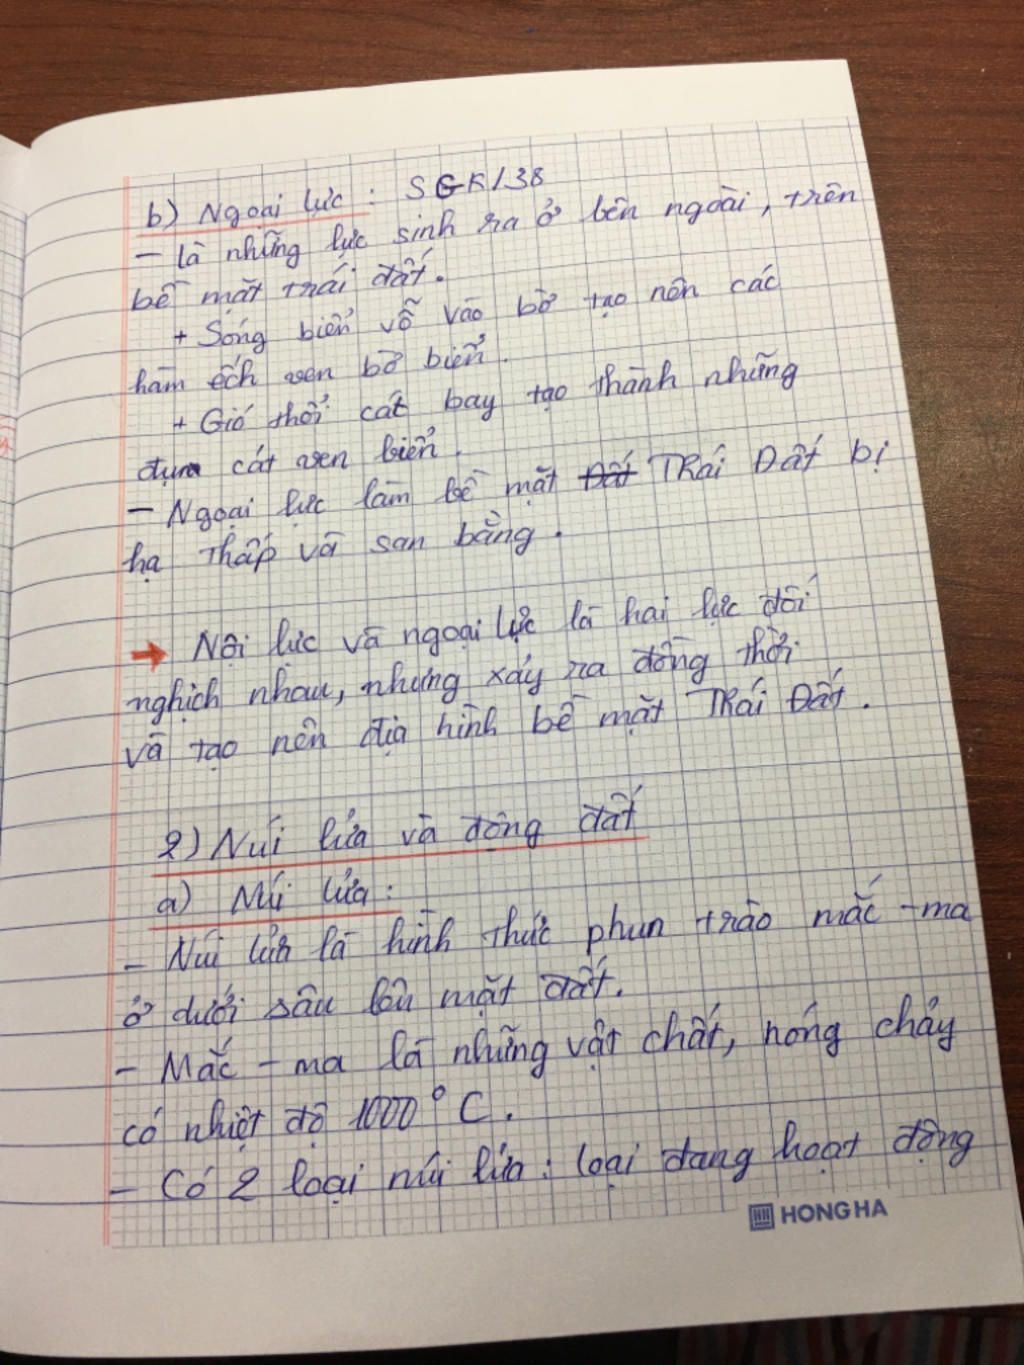 b) Ngoại lực : SGK/38
– là những lực sinh ra ở bên ngoài, trên
bề mặt trái đất.
+ Sóng biển vỗ vào bờ tạo nên các
hàm ếch ven bờ biển.
+ Gió thổi cát bay tạo thành những
đụn cát ven biển.
– Ngoại lực làm bề mặt Đất Trái Đất bị
hạ thấp và san bằng.
→ Nội lực và ngoại lực là hai lực đối
nghịch nhau, nhưng xảy ra đồng thời
và tạo nên địa hình bề mặt Trái Đất.
2) Núi lửa và động đất
a) Núi lửa :
– Núi lửa là hình thức phun trào mắc -ma
ở dưới sâu lên mặt đất.
– Mắc - ma là những vật chất, nóng chảy
có nhiệt độ 1000°C.
– Có 2 loại núi lửa : loại đang hoạt động
HONG HA